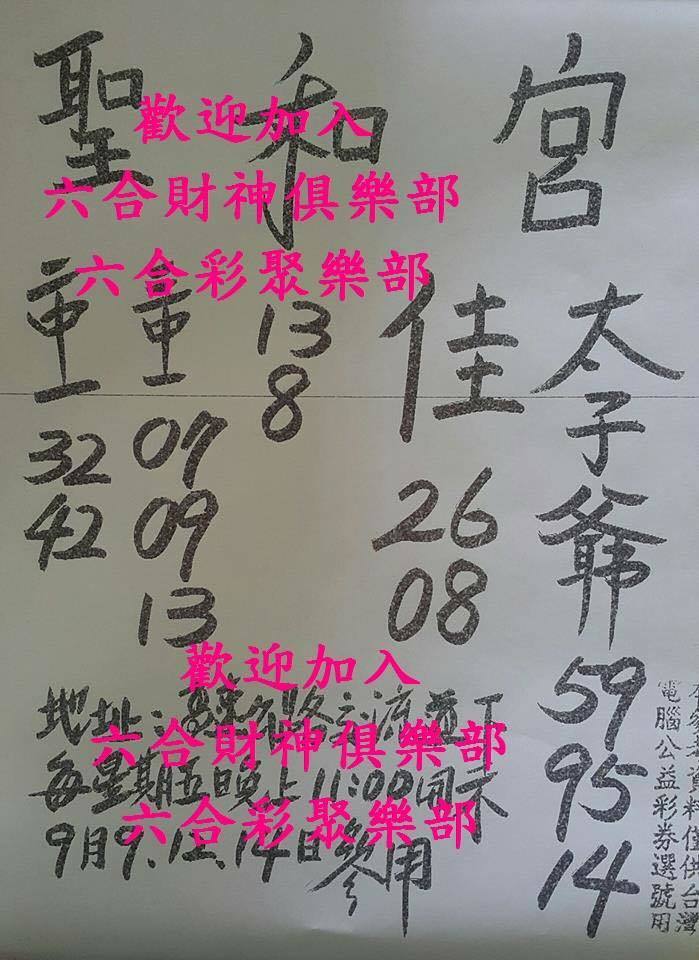 聖和宮
歡迎加入
六合財神俱樂部
六合彩聚樂部
太子爺
59
95
14
佳
26
08
13
8
重
07
09
13
重
32
42
歡迎加入
六合財神俱樂部
六合彩聚樂部
地址:路交流道下
每星期五晚上11:00開示
9月9.12.14日參用
僅供台灣
電腦公益彩券選號用